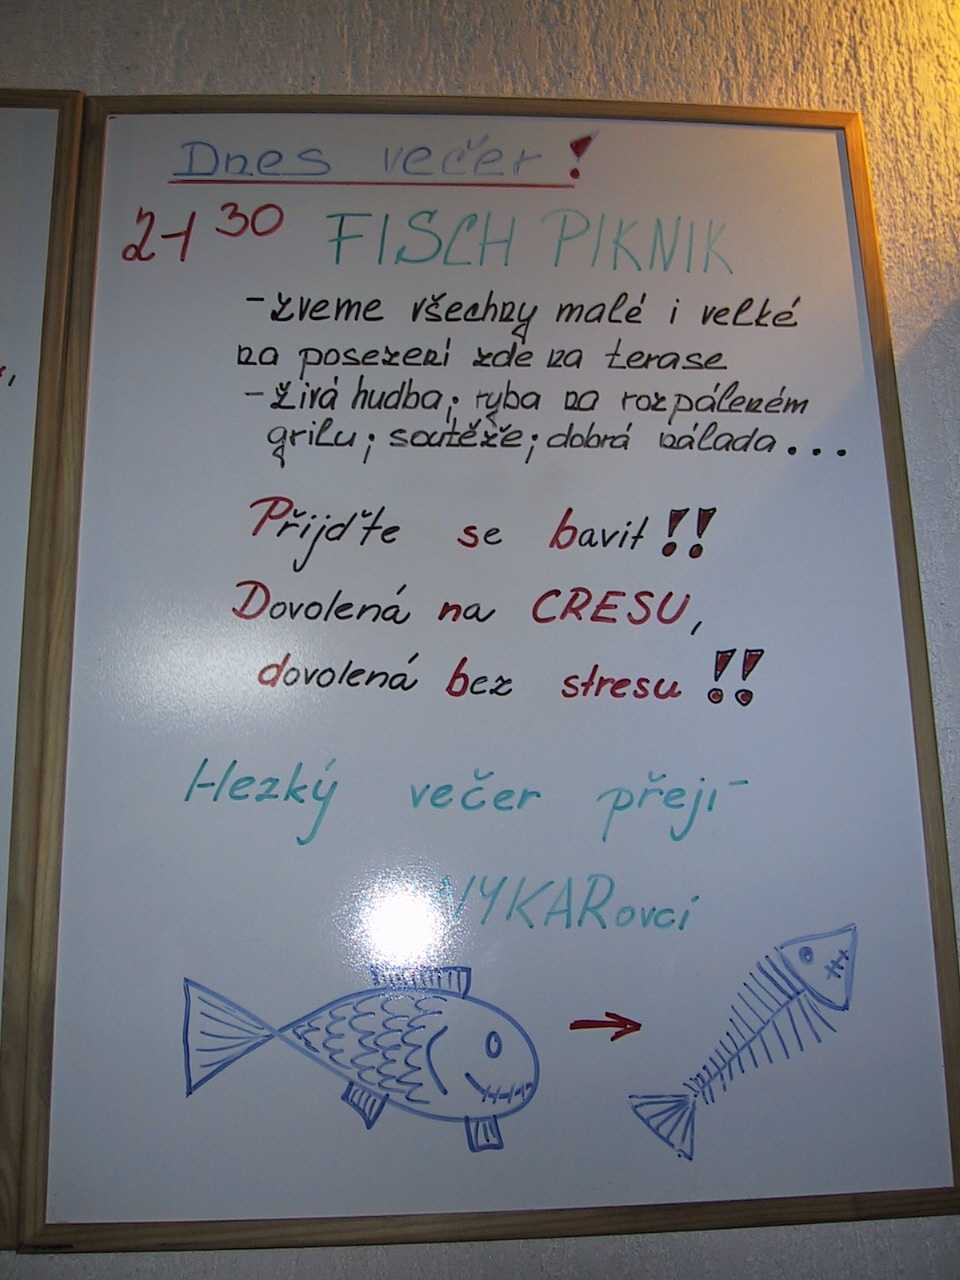 Dnes večer!
21 30 FISCH PIKNIK
- zveme všechny malé i velké
na posezení zde na terase
- živá hudba; ryba na rozpáleném
grilu; soutěže; dobrá nálada...
Přijďte se bavit!!
Dovolená na CRESU,
dovolená bez stresu!!
Hezký večer přejí
VYKARovci